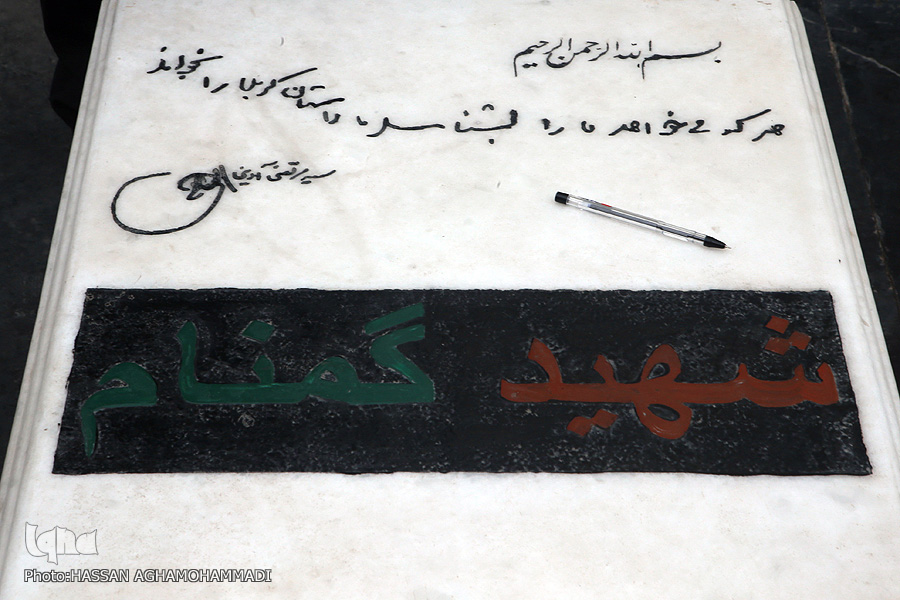 بسم الله الرحمن الرحیم
هر که می خواهد ما را بشناسد داستان کربلا را بخواند
سید مرتضی آوینی
شهید گمنام
iqna
Photo:HASSAN AGHAMOHAMMADI